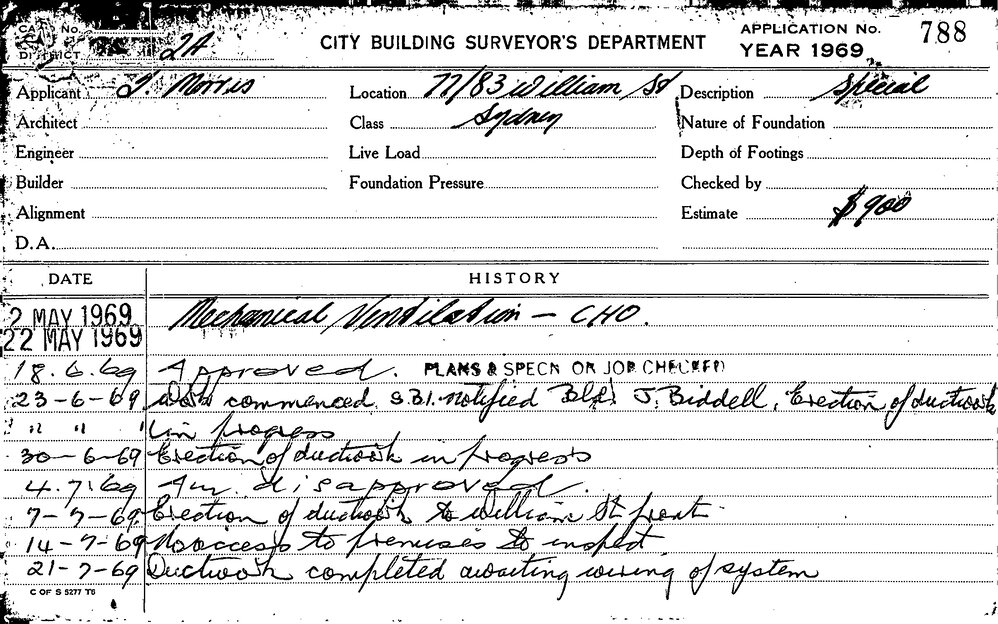 No. 2A
DISTRICT
CITY BUILDING SURVEYOR'S DEPARTMENT
APPLICATION No. 788
YEAR 1969
Applicant J. Morris Location 77/83 William St Description Special
Architect Class Sydney Nature of Foundation
Engineer Live Load Depth of Footings
Builder Foundation Pressure Checked by
Alignment Estimate $900
D.A.
DATE HISTORY
2 MAY 1969 Mechanical Ventilation – CHO.
22 MAY 1969
18.6.69 Approved. PLANS & SPECN ON JOB CHECKED
23-6-69 Work commenced. S.B.I. notified Bldr J. Biddell, Erection of ductwork
" " " in progress
30-6-69 Erection of ductwork in progress
4.7.69 Am. disapproved.
7-7-69 Erection of ductwork to William St front
14-7-69 No access to premises to inspect
21-7-69 Ductwork completed awaiting wiring of system
C OF S 5277 T6